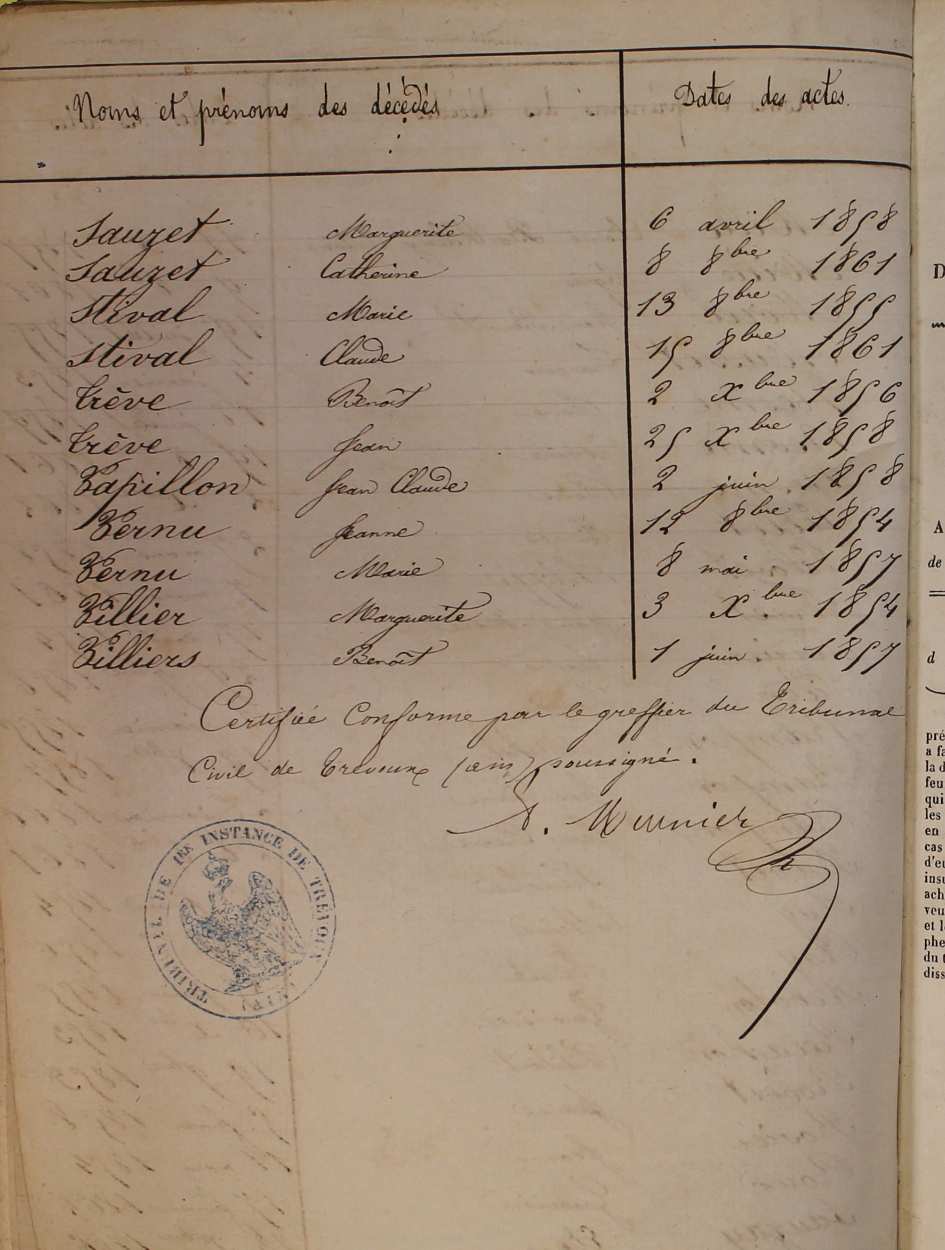 Noms et prénoms des décédés Dates des actes.
Sauzet Marguerite 6 avril 1858
Sauzet Catherine 8 8bre 1861
Stival Marie 13 8bre 1855
Stival Claude 15 8bre 1861
Trève Benoît 2 Xbre 1856
Trève Jean 25 Xbre 1858
Vapillon Jean Claude 2 juin 1858
Vernu Jeanne 12 8bre 1854
Vernu Marie 8 mai 1857
Villier Marguerite 3 Xbre 1854
Villiers Benoît 1 juin 1857
Certifiée conforme par le greffier du Tribunal
Civil de Trévoux (ain) soussigné.
A. Meunier
TRIBUNAL DE 1ERE INSTANCE DE TRÉVOUX
(AIN)
D
A
de
d
pré
a fa
la d
feu
qui
les
en
cas
d'eu
insu
ach
veu
et l
phe
du t
diss